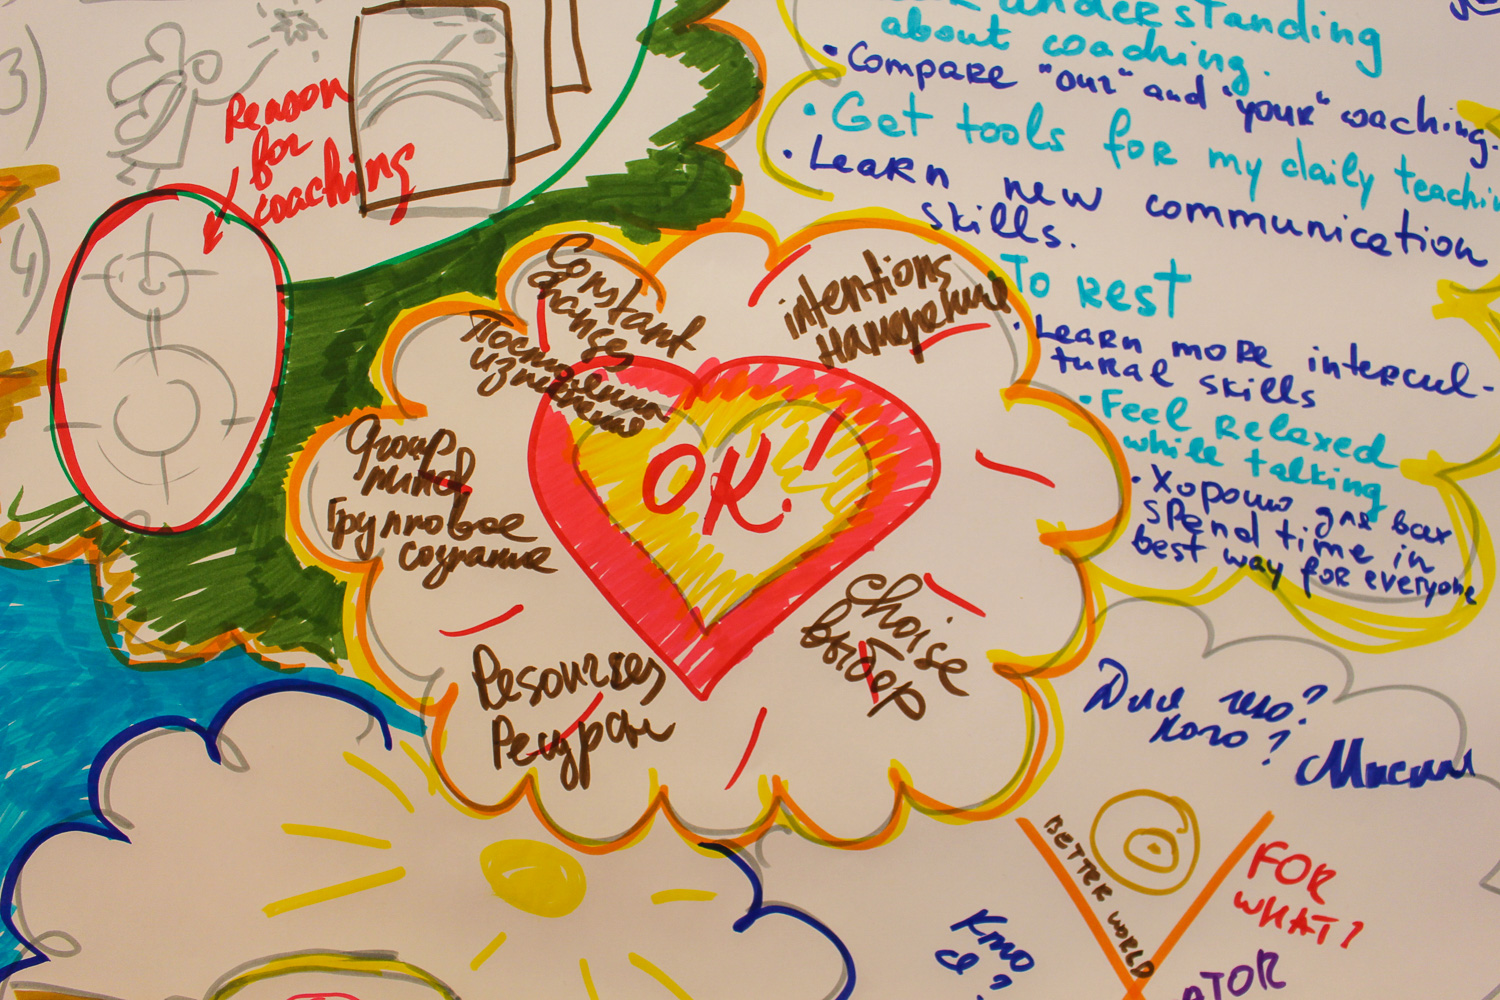 Reason
for
coaching
understanding
about coaching.
• Compare "our" and "your" coaching.
• Get tools for my daily teachin
• Learn new communication
skills.
To rest
• Learn more intercul-
tural skills
• Feel relaxed
while talking
• Хорошо для всех
spend time in
best way for everyone
Constant
changes
Постоянные
изменения
intentions
намерение
OK!
group
mind
Групповое
сознание
choise
выбор
Resourses
Ресурсы
Для чего?
Кого?
Миссия
BETTER WORLD
FOR
WHAT?
Кто
я?
ATOR
3)
4)